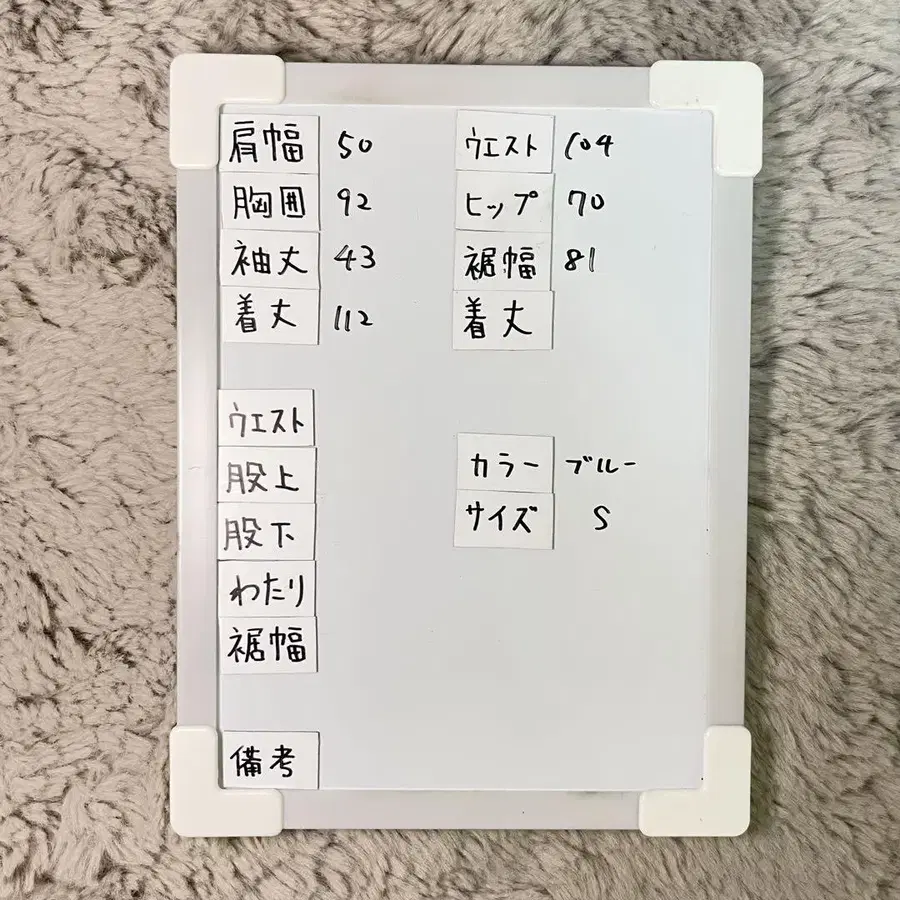 肩幅 50
胸囲 92
袖丈 43
着丈 112
ウエスト 104
ヒップ 70
裾幅 81
着丈
ウエスト
股上
股下
わたり
裾幅
カラー ブルー
サイズ S
備考